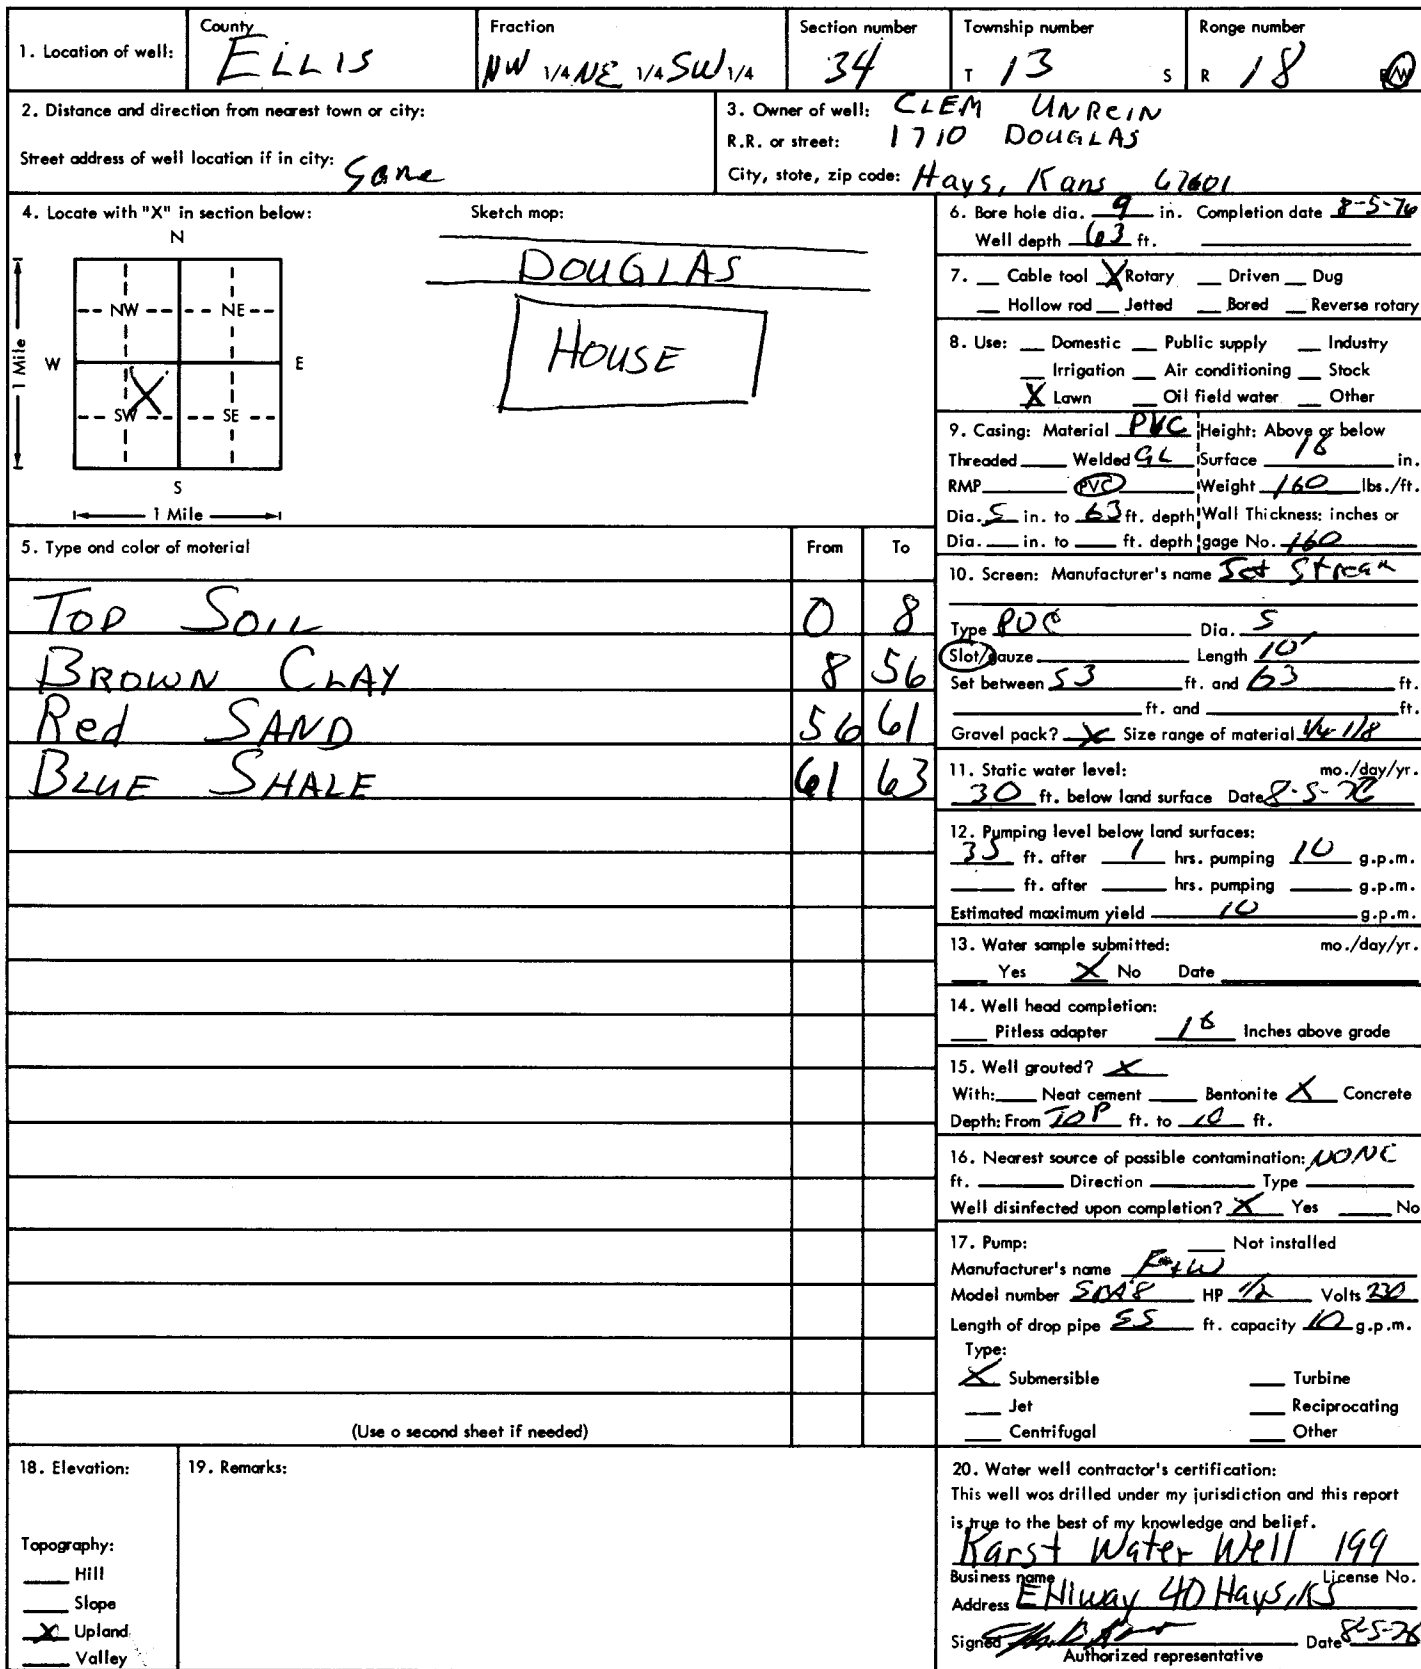 1. Location of well: County ELLIS Fraction NW 1/4 NE 1/4 SW 1/4 Section number 34 Township number T 13 S Ronge number R 18 E/W
2. Distance and direction from nearest town or city:
Street address of well location if in city: Same
3. Owner of well: CLEM UNREIN
R.R. or street: 1710 DOUGLAS
City, stote, zip code: Hays, Kans 67601
4. Locate with "X" in section below: Sketch mop:
N
NW NE
W E
X
SW SE
S
1 Mile
1 Mile
DOUGLAS
HOUSE
5. Type ond color of moterial From To
TOP SOIL 0 8
BROWN CLAY 8 56
Red SAND 56 61
BLUE SHALE 61 63
(Use o second sheet if needed)
6. Bore hole dia. 9 in. Completion date 8-5-76
Well depth 63 ft.
7. Cable tool X Rotary Driven Dug
Hollow rod Jetted Bored Reverse rotary
8. Use: Domestic Public supply Industry
Irrigation Air conditioning Stock
X Lawn Oil field water Other
9. Casing: Material PVC Height: Above or below
Threaded Welded GL Surface 18 in.
RMP PVC Weight 160 lbs./ft.
Dia. 5 in. to 63 ft. depth Wall Thickness: inches or
Dia. in. to ft. depth gage No. 160
10. Screen: Manufacturer's name Jet Stream
Type PVC Dia. 5
Slot/gauze Length 10'
Set between 53 ft. and 63 ft.
ft. and ft.
Gravel pack? X Size range of material 1/4-1/8
11. Static water level: mo./day/yr.
30 ft. below land surface Date 8-5-76
12. Pumping level below land surfaces:
35 ft. after 1 hrs. pumping 10 g.p.m.
ft. after hrs. pumping g.p.m.
Estimated maximum yield 10 g.p.m.
13. Water sample submitted: mo./day/yr.
Yes X No Date
14. Well head completion:
Pitless adapter 18 Inches above grade
15. Well grouted? X
With: Neat cement Bentonite X Concrete
Depth: From TOP ft. to 10 ft.
16. Nearest source of possible contamination: NONE
ft. Direction Type
Well disinfected upon completion? X Yes No
17. Pump: Not installed
Manufacturer's name F+W
Model number HP 1/2 Volts 230
Length of drop pipe 55 ft. capacity 10 g.p.m.
Type:
X Submersible Turbine
Jet Reciprocating
Centrifugal Other
18. Elevation:
Topography:
Hill
Slope
X Upland
Valley
19. Remarks:
20. Water well contractor's certification:
This well wos drilled under my jurisdiction and this report
is true to the best of my knowledge and belief.
Karst Water Well 199
Business name License No.
Address E Hiway 40 Hays, KS
Signed Date 8-5-76
Authorized representative